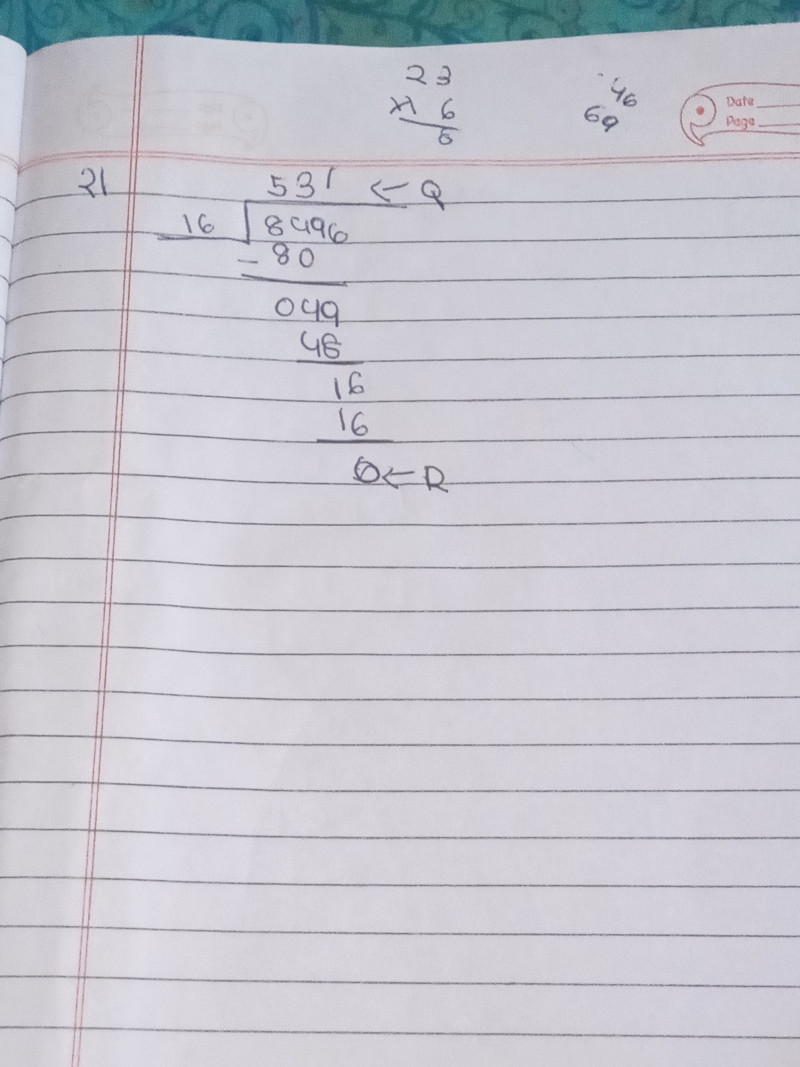 23
× 6
6
46
69
Date
Page
21
531 ← Q
16 8496
- 80
049
48
16
16
0 ← R